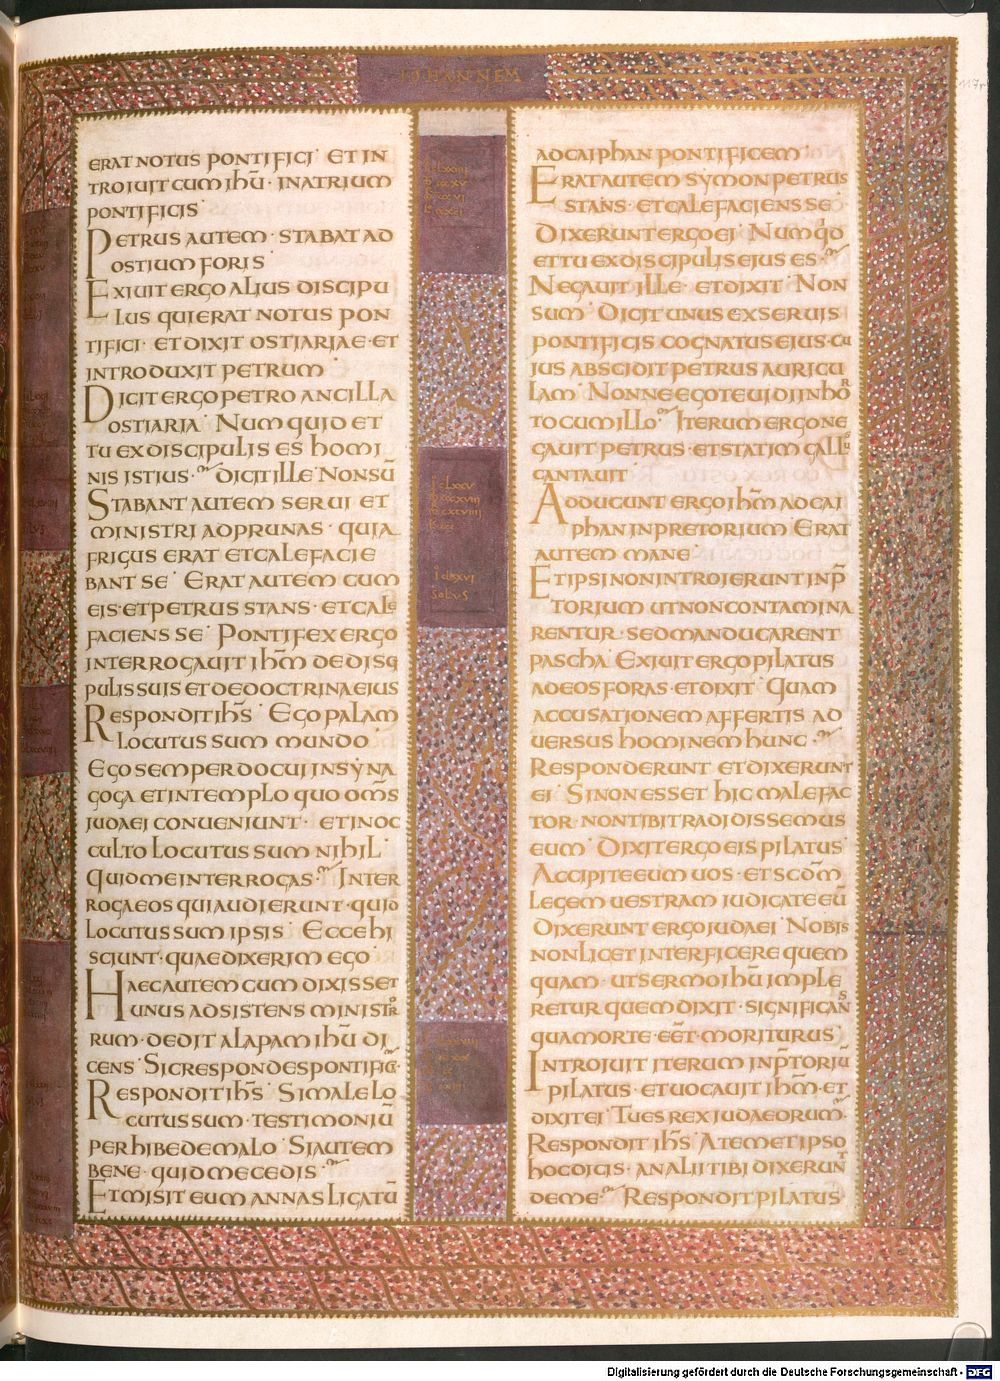 IOHANNEM
117r
ERAT NOTUS PONTIFICI· ET IN
TROIUIT CUM IHŪ· IN ATRIUM
PONTIFICIS·
PETRUS AUTEM· STABAT AD
OSTIUM FORIS·
EXIUIT ERGO ALIUS DISCIPU
LUS QUI ERAT NOTUS PON
TIFICI· ET DIXIT OSTIARIAE· ET
INTRODUXIT PETRUM·
DICIT ERGO PETRO ANCILLA
OSTIARIA· NUMQUID ET
TU EX DISCIPULIS ES HOMI
NIS ISTIUS· DICIT ILLE· NON SŪ
STABANT AUTEM SERUI ET
MINISTRI AD PRUNAS· QUIA
FRIGUS ERAT ET CALEFACIE
BANT SE· ERAT AUTEM CUM
EIS· ET PETRUS STANS· ET CALE
FACIENS SE· PONTIFEX ERGO
INTERROGAUIT IHM̄ DE DISCI
PULIS SUIS ET DE DOCTRINA EIUS
RESPONDIT IHS̄· EGO PALAM
LOCUTUS SUM MUNDO·
EGO SEMPER DOCUI IN SYNA
GOGA ET IN TEMPLO QUO OMS̄
IUDAEI CONUENIUNT· ET IN OC
CULTO LOCUTUS SUM NIHIL·
QUID ME INTERROGAS· INTER
ROGA EOS QUI AUDIERUNT· QUID
LOCUTUS SUM IPSIS· ECCE HI
SCIUNT· QUAE DIXERIM EGO·
HAEC AUTEM CUM DIXISSET·
UNUS ADSISTENS MINISTRO
RUM· DEDIT ALAPAM IHŪ DI
CENS· SIC RESPONDES PONTIFICI·
RESPONDIT IHS̄· SI MALE LO
CUTUS SUM· TESTIMONIŪ
PERHIBE DE MALO· SI AUTEM
BENE· QUID ME CEDIS·
ET MISIT EUM ANNAS LIGATŪ
AD CAIPHAN PONTIFICEM·
ERAT AUTEM SYMON PETRUS
STANS· ET CALEFACIENS SE·
DIXERUNT ERGO EI· NUMQD
ET TU EX DISCIPULIS EIUS ES·
NEGAUIT ILLE· ET DIXIT· NON
SUM· DICIT UNUS EX SERUIS
PONTIFICIS COGNATUS EIUS· CU
IUS ABSCIDIT PETRUS AURICU
LAM· NONNE EGO TE UIDI IN HOR
TO CUM ILLO· ITERUM ERGO NE
GAUIT PETRUS· ET STATIM GALLUS
CANTAUIT·
ADDUCUNT ERGO IHM̄ AD CAI
PHAN IN PRETORIUM· ERAT
AUTEM MANE·
ET IPSI NON INTROIERUNT IN P̄
TORIUM UT NON CONTAMINA
RENTUR· SED MANDUCARENT
PASCHA· EXIUIT ERGO PILATUS
AD EOS FORAS· ET DIXIT· QUAM
ACCUSATIONEM AFFERTIS AD
UERSUS HOMINEM HUNC·
RESPONDERUNT ET DIXERUNT
EI· SI NON ESSET HIC MALEFAC
TOR· NON TIBI TRADIDISSEMUS
EUM· DIXIT ERGO EIS PILATUS·
ACCIPITE EUM UOS· ET SCDM̄
LEGEM UESTRAM IUDICATE EŪ
DIXERUNT ERGO IUDAEI· NOBIS
NON LICET INTERFICERE QUEM
QUAM· UT SERMO IHŪ IMPLE
RETUR QUEM DIXIT· SIGNIFICANS
QUA MORTE· EĒT· MORITURUS·
INTROIUIT ITERUM IN P̄TORIŪ
PILATUS· ET UOCAUIT IHM̄· ET
DIXIT EI· TU ES REX IUDAEORUM·
RESPONDIT IHS̄· A TEMET IPSO
HOC DICIS· AN ALII TIBI DIXERUNT
DE ME· RESPONDIT PILATUS·
SOLUS
Digitalisierung gefördert durch die Deutsche Forschungsgemeinschaft - DFG